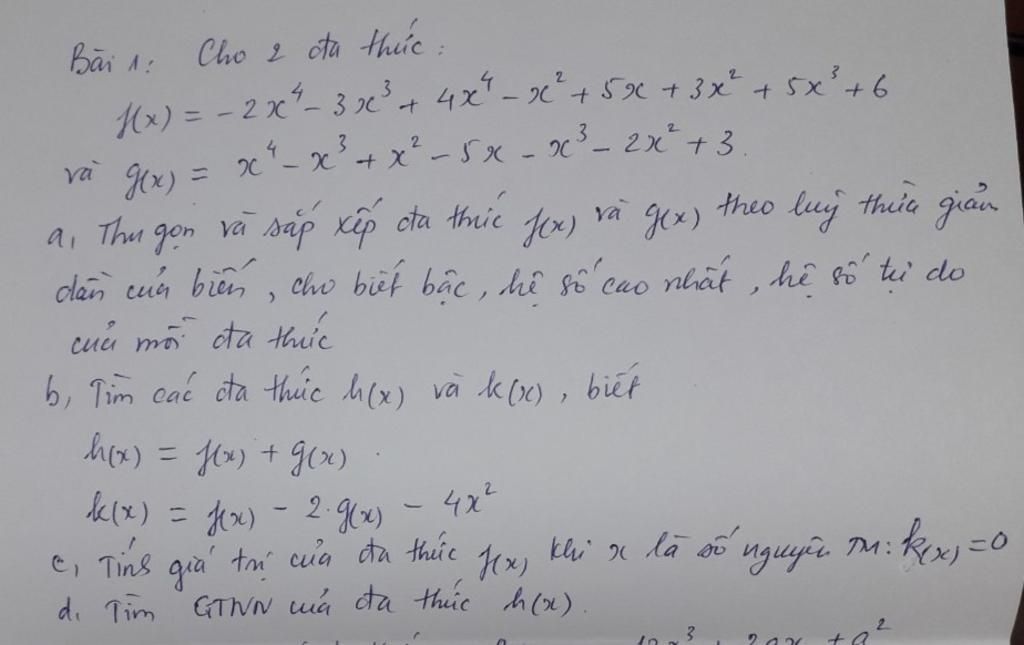 Bài 1: Cho 2 đa thức:
f(x) = -2x⁴ - 3x³ + 4x⁴ - x² + 5x + 3x² + 5x³ + 6
và g(x) = x⁴ - x³ + x² - 5x - x³ - 2x² + 3.
a, Thu gọn và sắp xếp đa thức f(x) và g(x) theo luỹ thừa giảm
dần của biến, cho biết bậc, hệ số cao nhất, hệ số tự do
của mỗi đa thức
b, Tìm các đa thức h(x) và k(x), biết
h(x) = f(x) + g(x).
k(x) = f(x) - 2.g(x) - 4x²
c, Tính giá trị của đa thức f(x) khi x là số nguyên TM: k(x) = 0
d. Tìm GTNN của đa thức h(x).
x³ + 2ax + a²